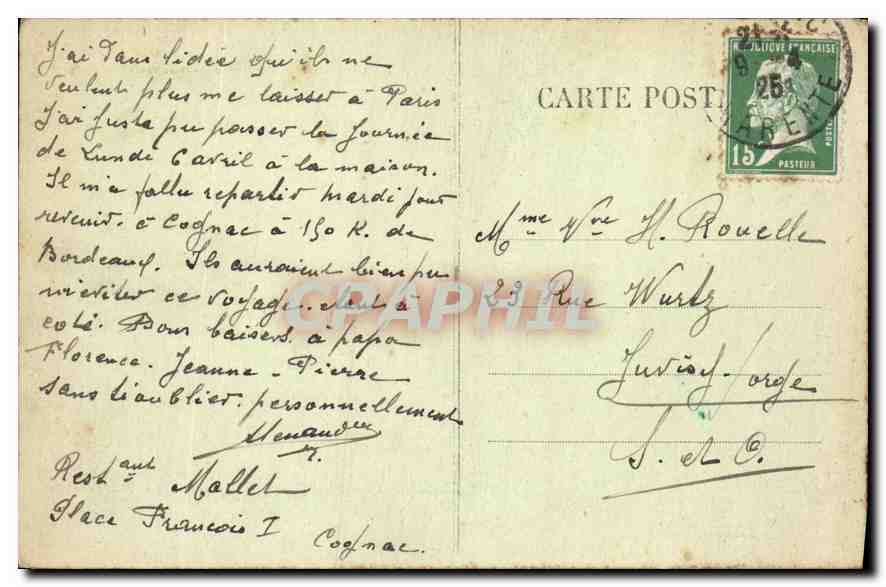 J'ai dans l'idée qu'ils ne
veulent plus me laisser à Paris
J'ai juste pu passer la journée
de Lundi 6 avril à la maison.
Il m'a fallu repartir mardi pour
revenir. à Cognac à 150 K. de
Bordeaux. Ils auraient bien pu
m'eviter ce voyage. etant à
coté. Bons baisers à papa
Florence. Jeanne - Pierre
sans t'oublier. personnellement
Restant Mallet
Place François I
Cognac.
CARTE POST
REPUBLIQUE FRANÇAISE
POSTES
15
PASTEUR
21
9 - 4
25
CHARENTE
Mme Vve H. Rouelle
23 Rue Wurtz
Juvisy s/orge
S. et O.
CPAPHIL